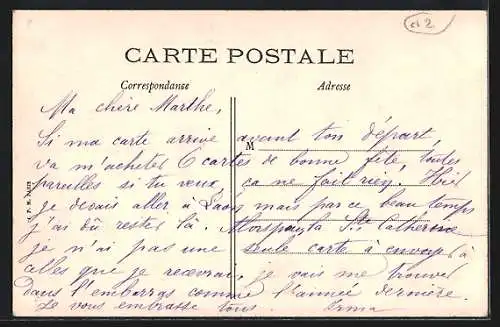 42
CARTE POSTALE
Correspondanse
Adresse
M
Ma chère Marthe,
Si ma carte arrive avant ton départ,
va m'acheter 6 cartes de bonne fête, toutes
pareilles si tu veux, ça ne fait rien. Hier
je devais aller à Laon mais par ce beau temps
j'ai dû rester là. Ste Catherine
je n'ai pas une seule carte à envoyer à
celles que je recevrai, je vais me trouver
dans l'embarras comme l'année dernière.
Je vous embrasse tous. Irma